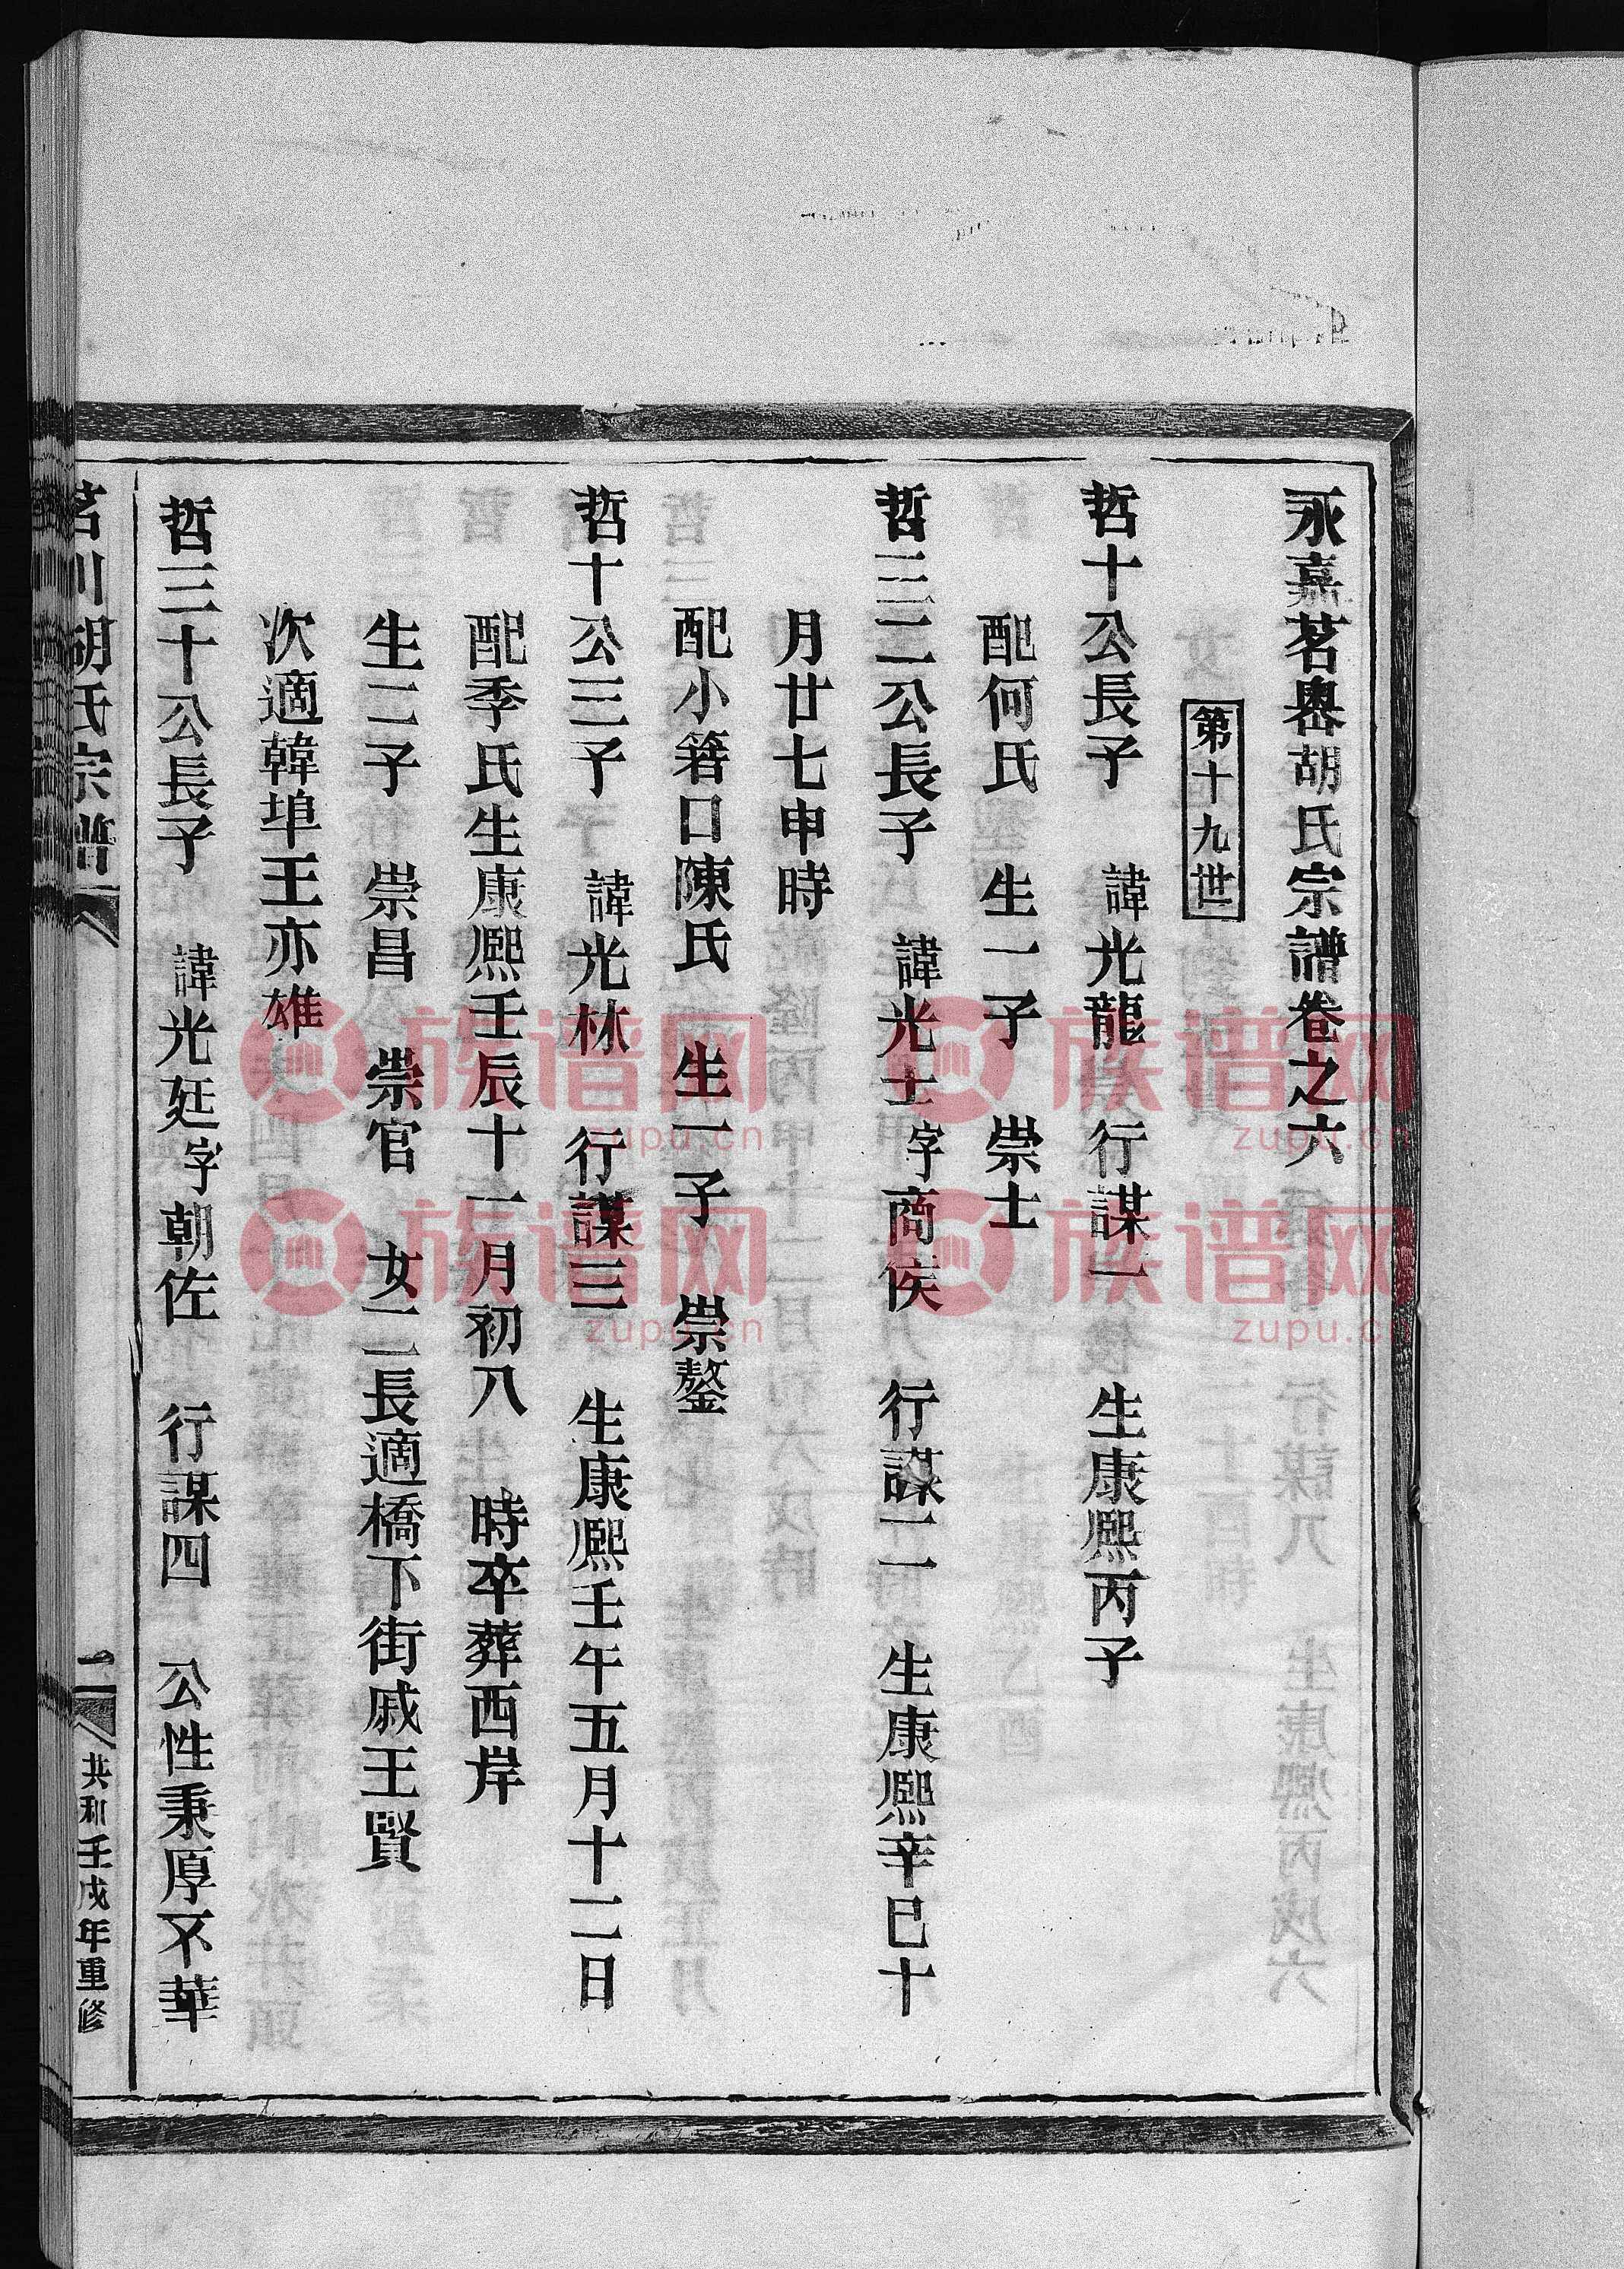 永嘉茗嶴胡氏宗譜卷之六
第十九世
哲十公長子 諱光龍 行謀一 生康熙丙子
配何氏 生一子 崇士
哲三二公長子 諱光士字商侯 行謀二 生康熙辛巳十
月廿七申時
配小箬口陳氏 生一子 崇鏊
哲十公三子 諱光林 行謀三 生康熙壬午五月十二日
配季氏生康熙壬辰十一月初八 時卒葬西岸
生二子 崇昌 崇官 女二長適橋下街戚王賢
次適韓埠王亦雄
哲三十公長子 諱光廷字朝佐 行謀四 公性秉厚不華
茗川胡氏宗譜
二
共和壬戌年重修
族谱网
zupu.cn
族谱网
zupu.cn
族谱网
zupu.cn
族谱网
zupu.cn